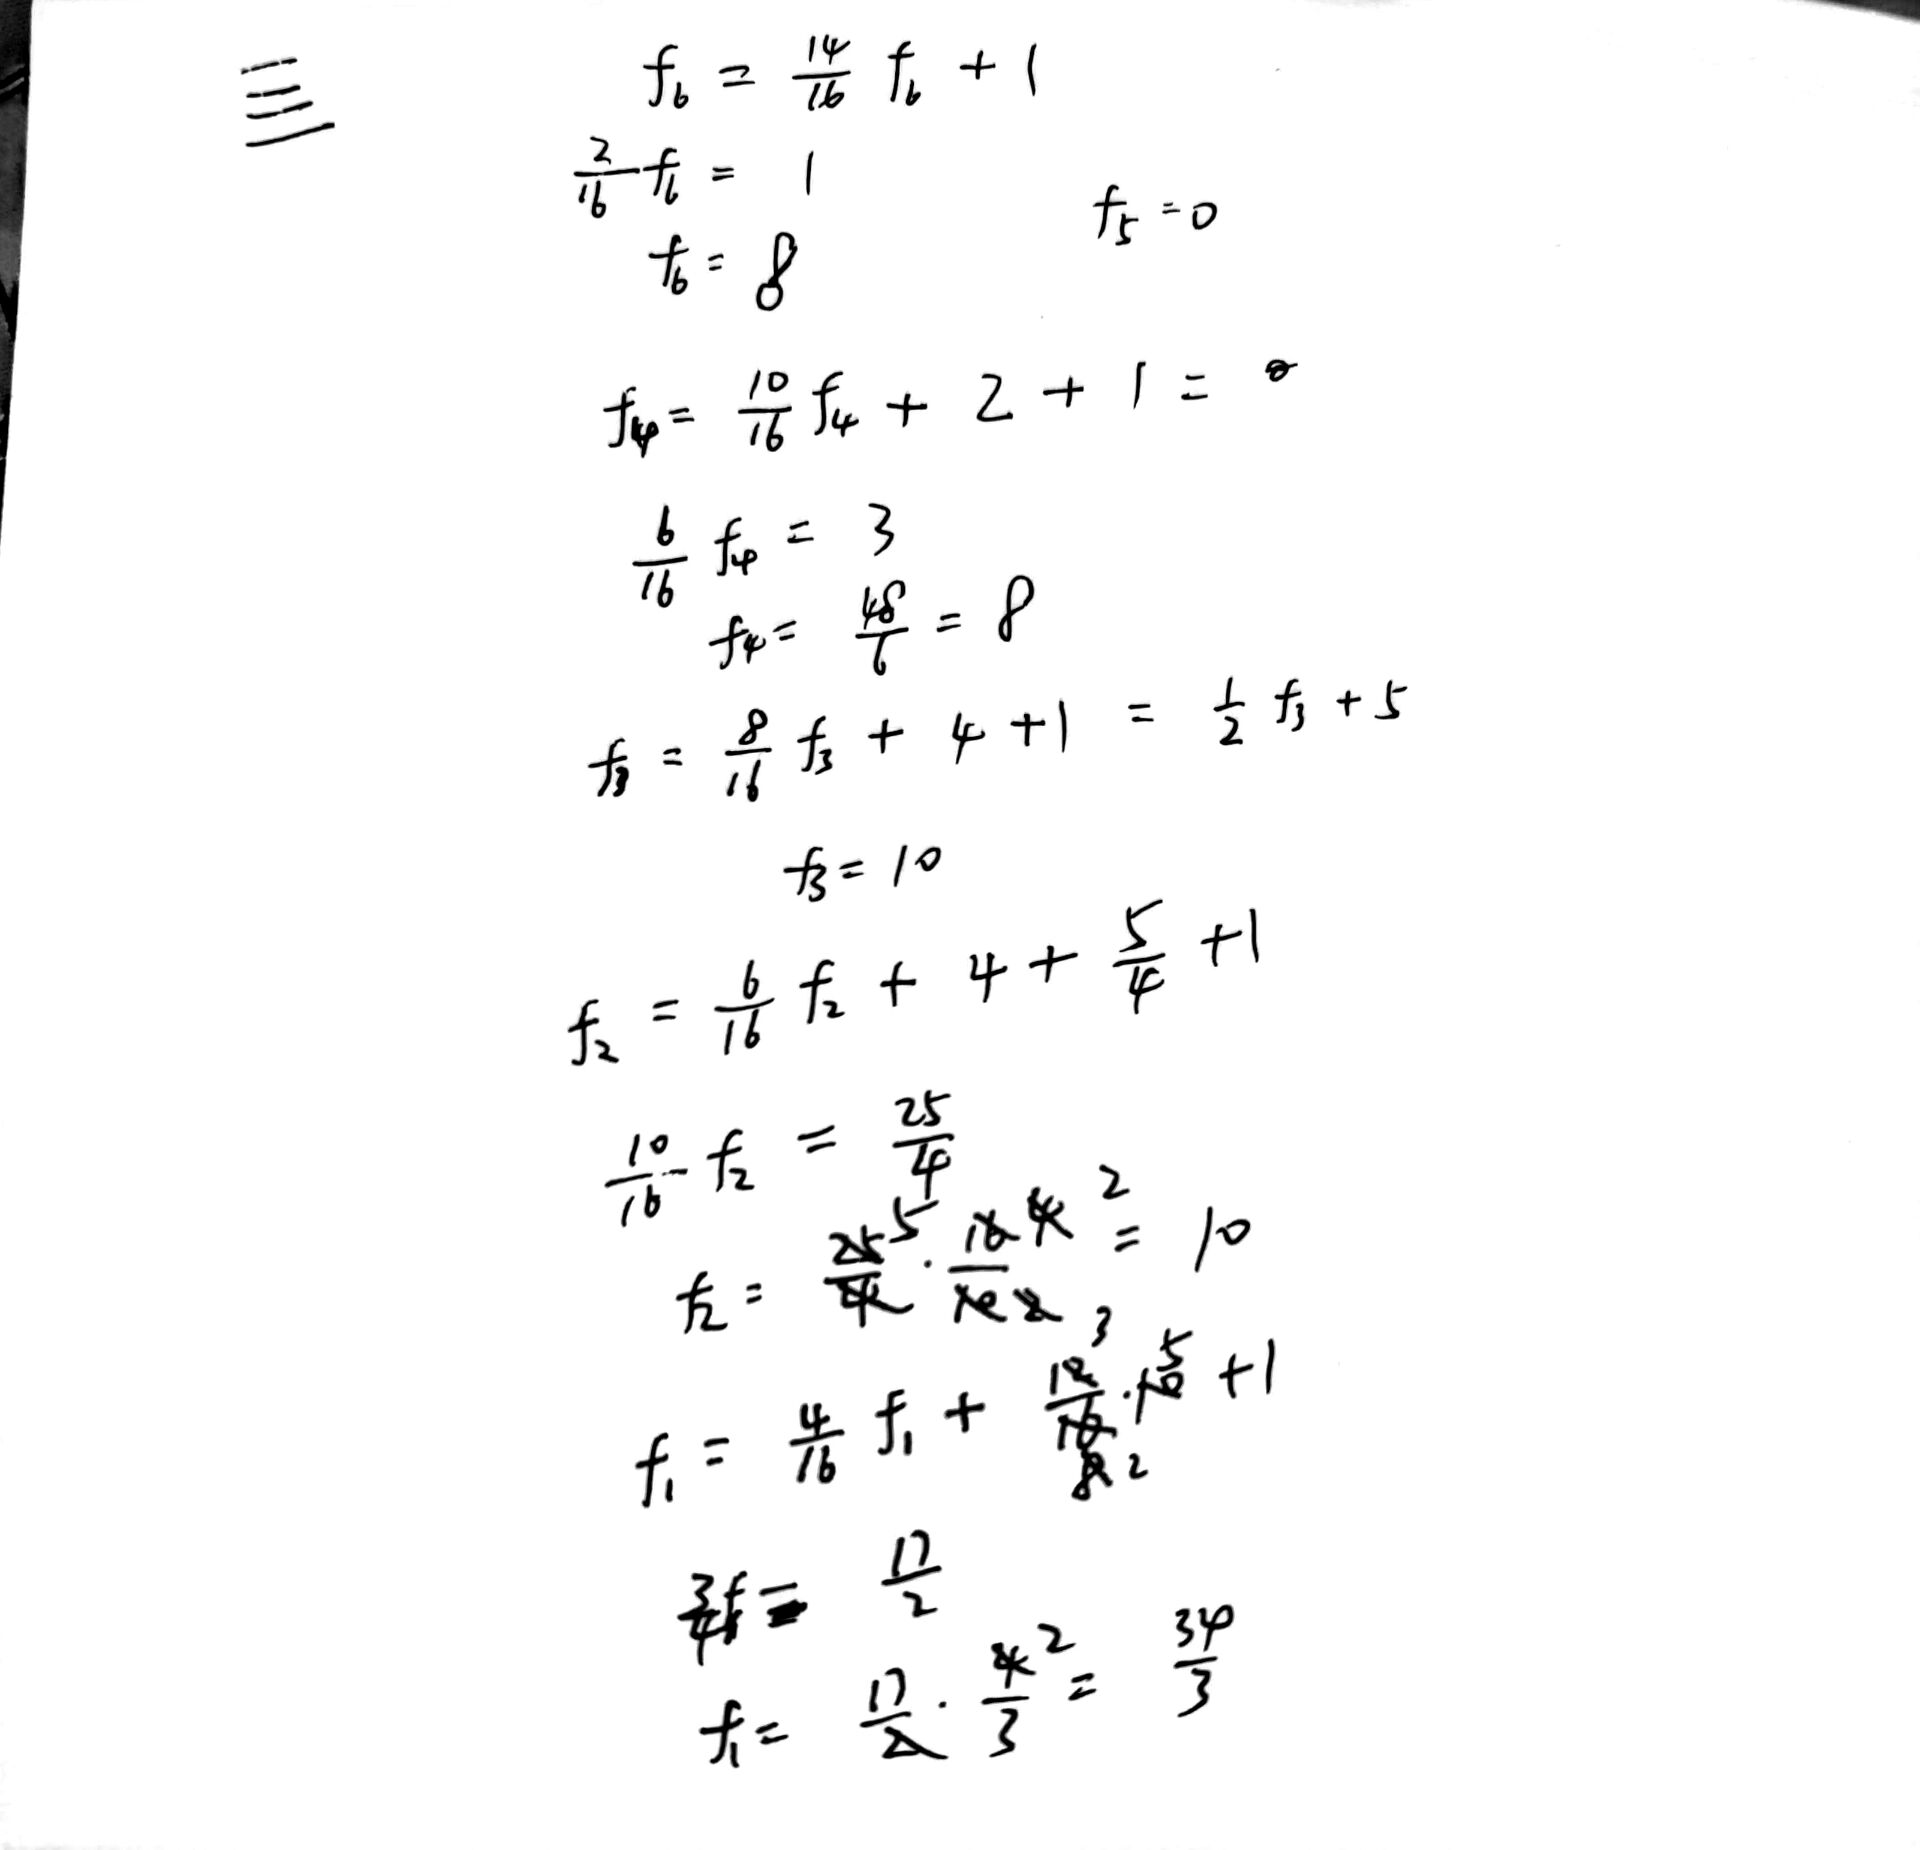 f₆ = 14/16 f₆ + 1
2/16 f₆ = 1
f₅ = 0
f₆ = 8
f₄ = 10/16 f₄ + 2 + 1 =
6/16 f₄ = 3
f₄ = 48/6 = 8
f₃ = 8/16 f₃ + 4 + 1 = 1/2 f₃ + 5
f₃ = 10
f₂ = 6/16 f₂ + 4 + 5/4 + 1
10/16 f₂ = 25/4
f₂ = 25/4 5 · 16/10 4 2 2 = 10
f₁ = 4/16 f₁ + 12/16 3 8 2 · 10 5 + 1
3/4 f₁ = 17/2
f₁ = 17/2 · 4/3 2 = 34/3